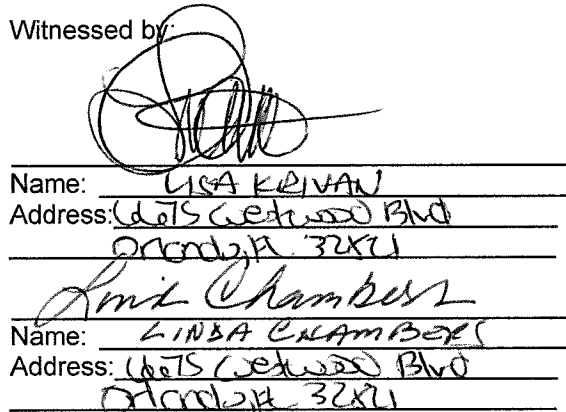 Witnessed by:
Name: LISA KRIVAN
Address: 6675 Westwood Blvd
Orlando, FL 32821
Linda Chambers
Name: LINDA CHAMBERS
Address: 6675 Westwood Blvd
Orlando, FL 32821